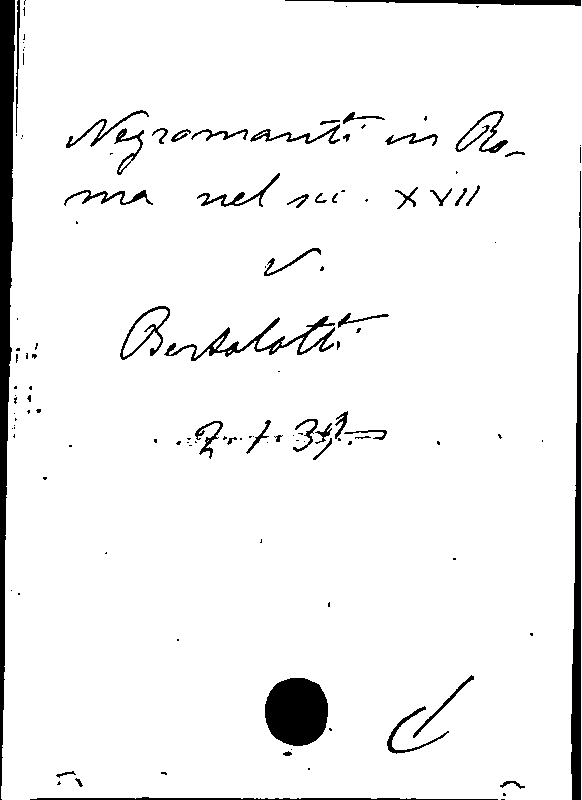 Negromanti in Ro-
ma nel sec. XVII
v.
Bertolotti